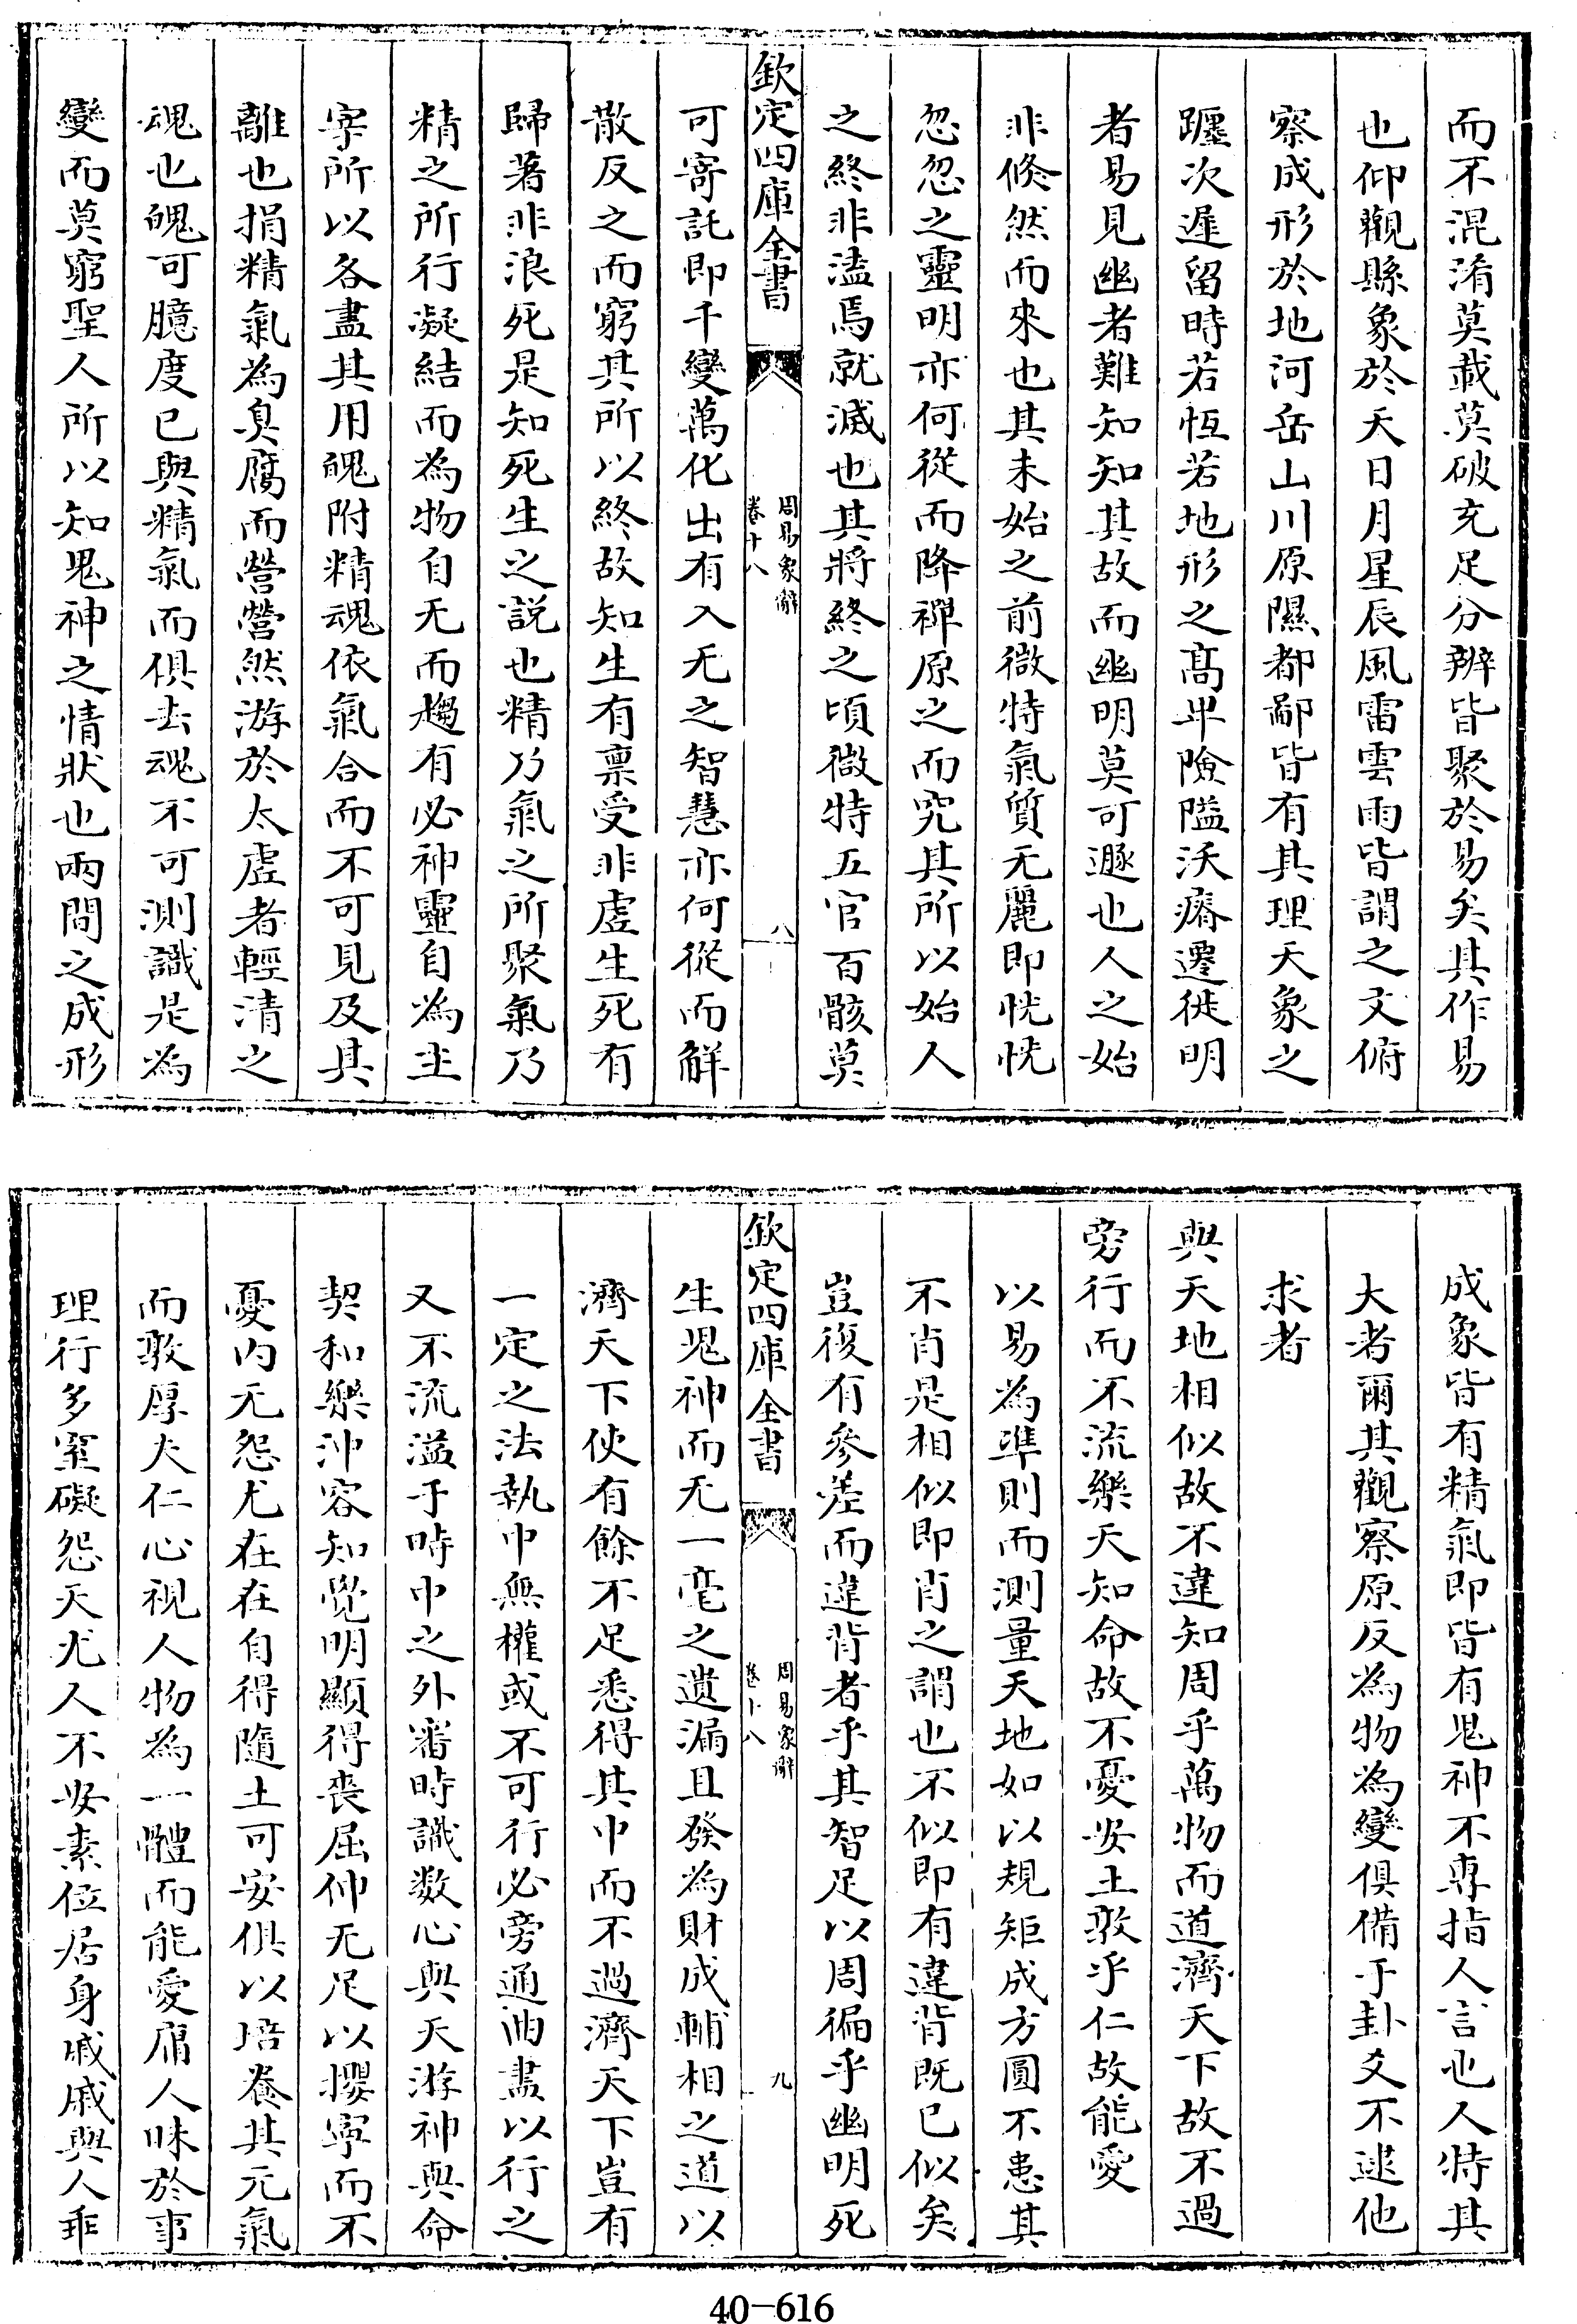 而不混淆莫載莫破充足分辨皆聚於易矣其作易
也仰觀縣象於天日月星辰風雷雲雨皆謂之文俯
察成形於地河岳山川原隰都鄙皆有其理天象之
躔次遲留時若恆若地形之高卑險隘沃瘠遷徙明
者易見幽者難知知其故而幽明莫可遯也人之始
非倏然而來也其未始之前微特氣質无麗即恍恍
忽忽之靈明亦何從而降禪原之而究其所以始人
之終非溘焉就滅也其將終之頃微特五官百骸莫
欽定四庫全書
周易象辭
卷十八
八
可寄託即千變萬化出有入无之智慧亦何從而解
散反之而窮其所以終故知生有稟受非虛生死有
歸著非浪死是知死生之說也精乃氣之所聚氣乃
精之所行凝結而為物自无而趨有必神靈自為主
宰所以各盡其用魄附精魂依氣合而不可見及其
離也捐精氣為臭腐而營營然游於太虛者輕清之
魂也魄可臆度已與精氣而俱去魂不可測識是為
變而莫窮聖人所以知鬼神之情狀也兩間之成形
成象皆有精氣即皆有鬼神不專指人言也人特其
大者爾其觀察原反為物為變俱備于卦爻不逮他
求者
與天地相似故不違知周乎萬物而道濟天下故不過
旁行而不流樂天知命故不憂安土敦乎仁故能愛
以易為準則而測量天地如以規矩成方圓不患其
不肖是相似即肖之謂也不似即有違背既已似矣
豈復有參差而違背者乎其智足以周徧乎幽明死
欽定四庫全書
周易象辭
卷十八
九
生鬼神而无一毫之遺漏且發為財成輔相之道以
濟天下使有餘不足悉得其中而不過濟天下豈有
一定之法執中無權或不可行必旁通曲盡以行之
又不流溢于時中之外審時識數心與天游神與命
契和樂沖容知覺明顯得喪屈伸无足以攖寧而不
憂內无怨尤在在自得隨土可安俱以培養其元氣
而敦厚夫仁心視人物為一體而能愛庸人昧於事
理行多窒礙怨天尤人不安素位居身戚戚與人乖
40-616